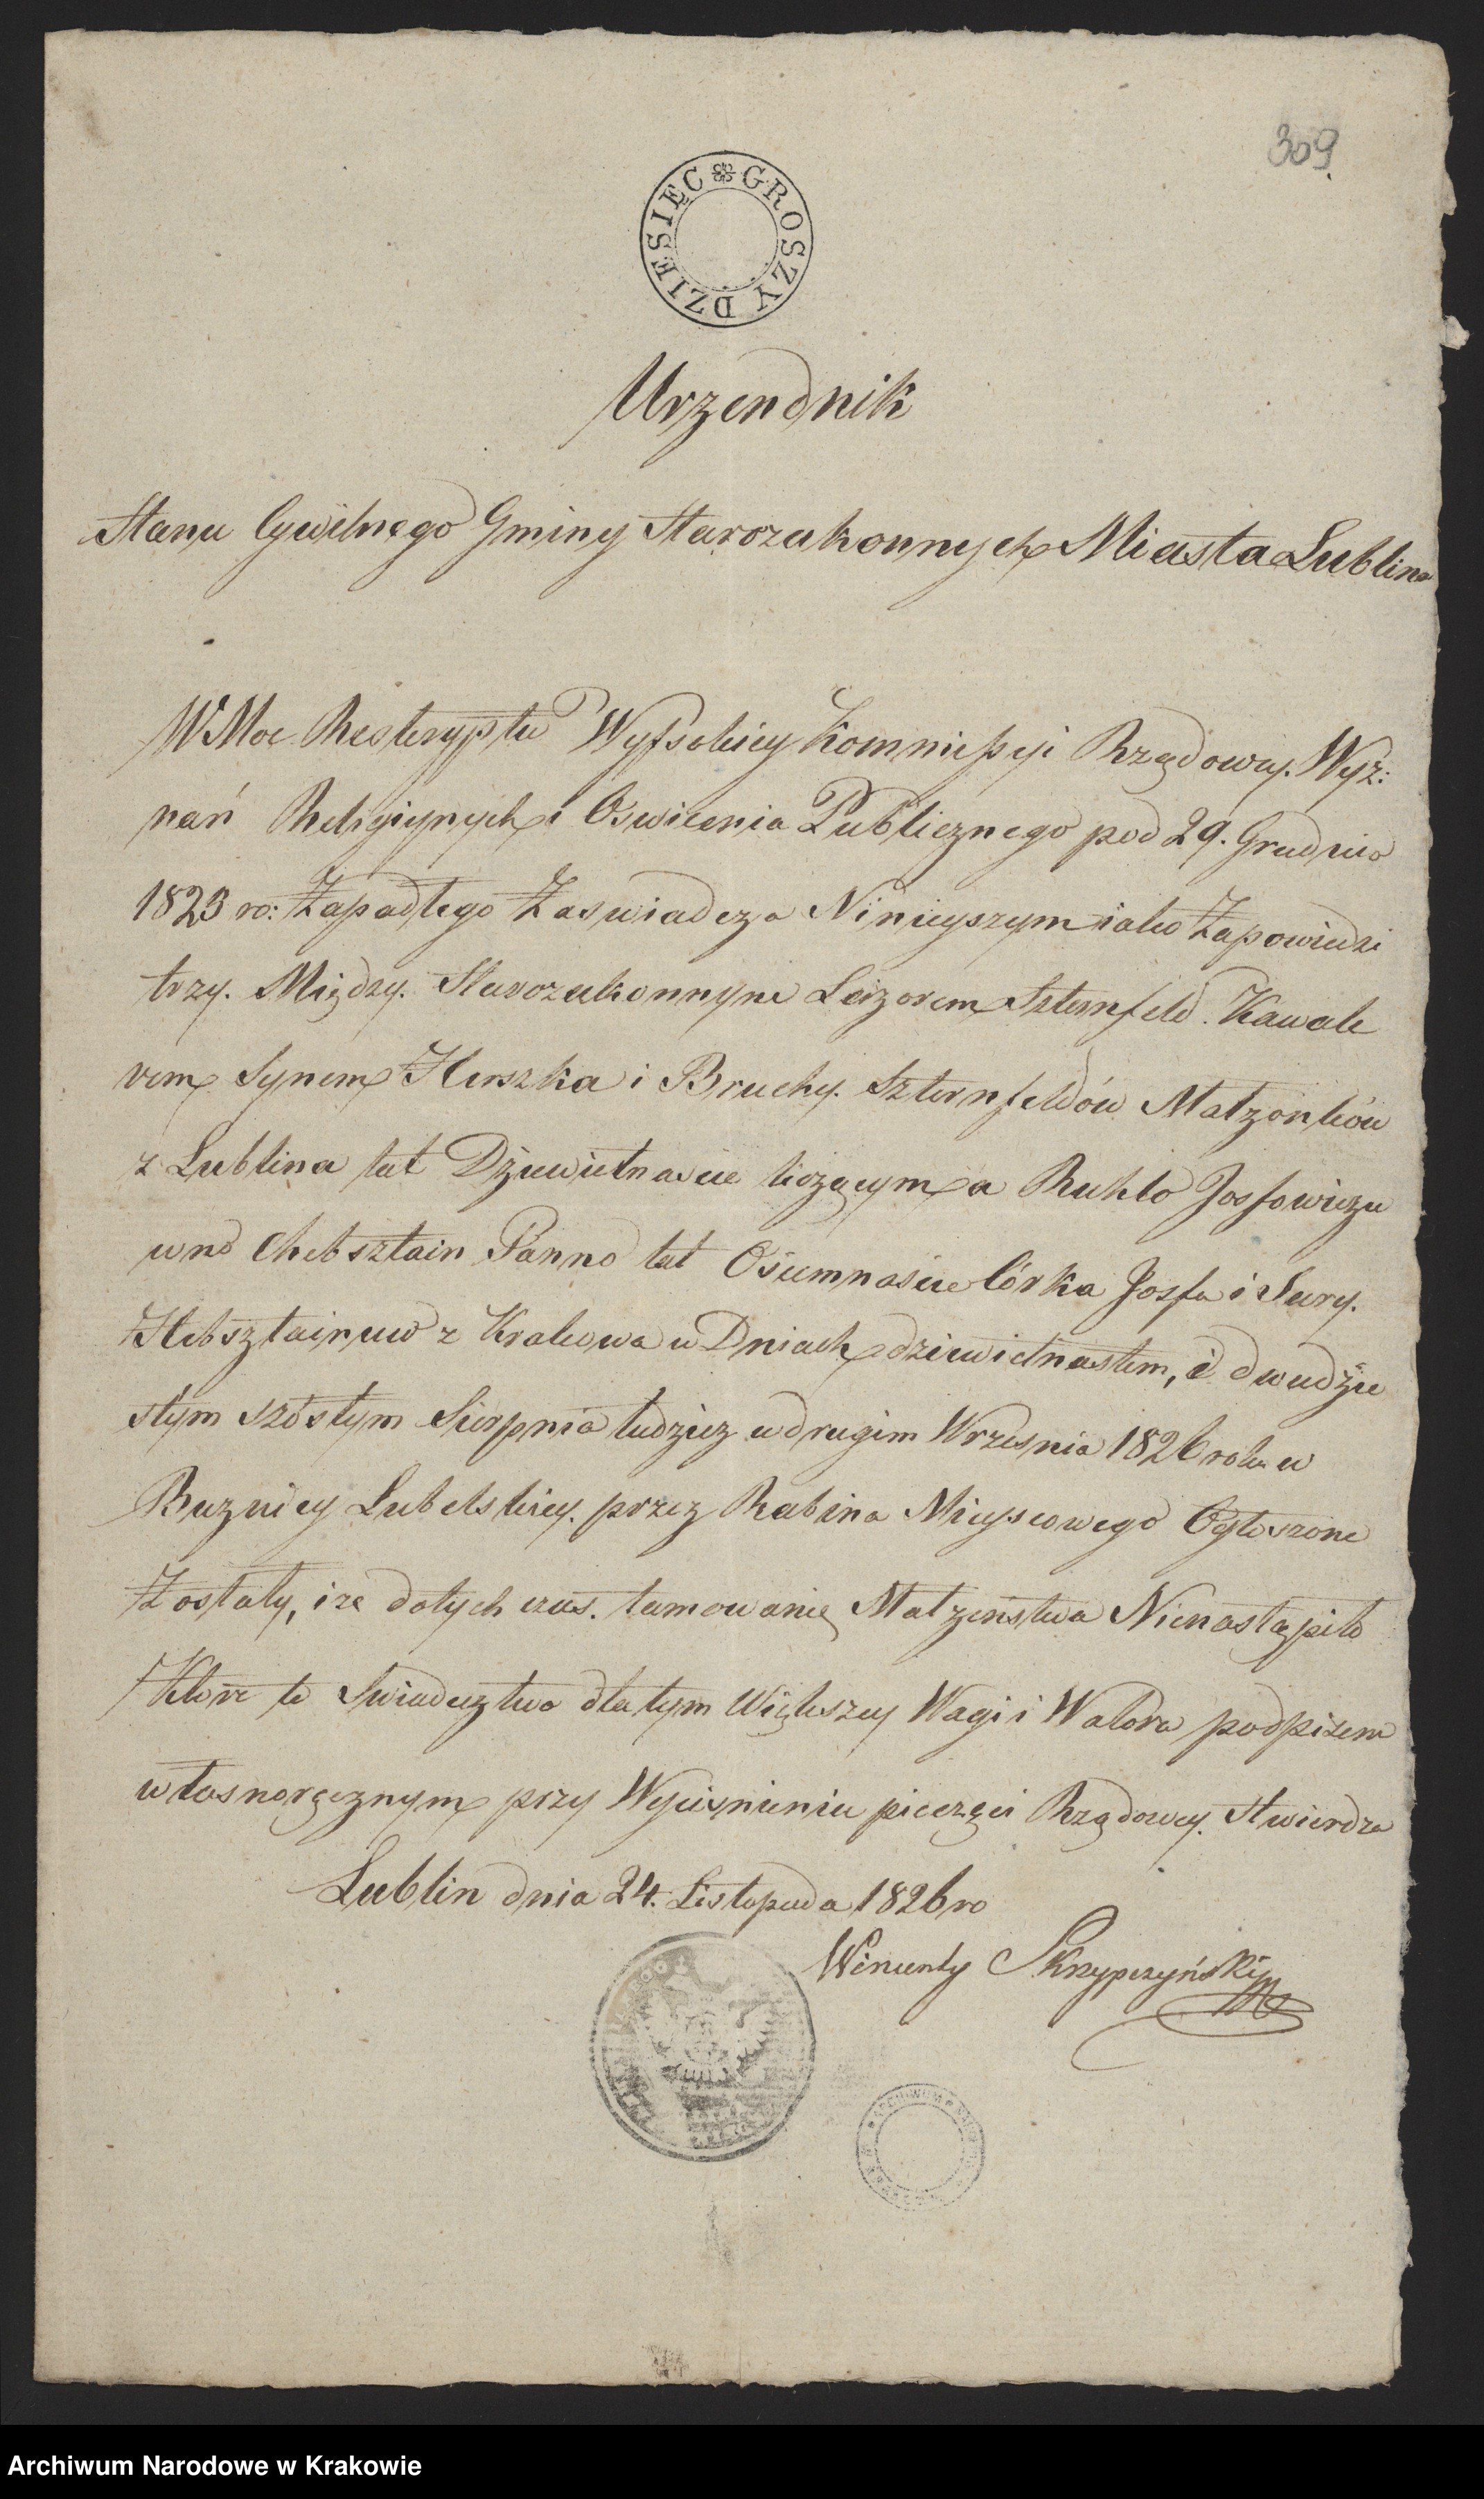 309.
DZIESIĘC GROSZY
Urzendnik
Stanu Cywilnego Gminy Starozakonnych Miasta Lublina
W Moc Reskryptu Wyssokiey Kommissyi Rządowey. Wyz:
nań Religiynych i Oswicenia Publicznego pod 29. Grudnia
1823 ro: Zapadłego Zaswiadcza Ninieyszym iako Zapowiedzi
trzy. Między. Starozakonnym Leizorem Szternfeld. Kawale
rem Synem Herszka i Bruchy. Szternfeldów Małzonków
z Lublina lat Dziewietnascie liczącym a Ruhlo Josfowiczu
wno Chebsztain Panno lat Osiemnascie Córka Josfa i Sury.
Hebsztainuw z Krakowa w Dniach dziewietnastem, i dwudzie
stym szostym Sierpnia tudziez w drugim Wrzesnia 1826 roku w
Buznicy Lubelskiey. przez Rabina Mieyscowego Ogłoszone
Zostały, i ze dotych czas. tamowanie Małzenstwa Nienastąpiło
Ktore to Swiadectwo dla tym Większey Wagi i Walora podpisem
własnoręcznym przy Wycisnieniu pieczęci Rządowey. Stwierdza
Lublin dnia 24. Listopada 1826 ro
Wincenty Skrzypczyński
ARCHIWUM
Archiwum Narodowe w Krakowie